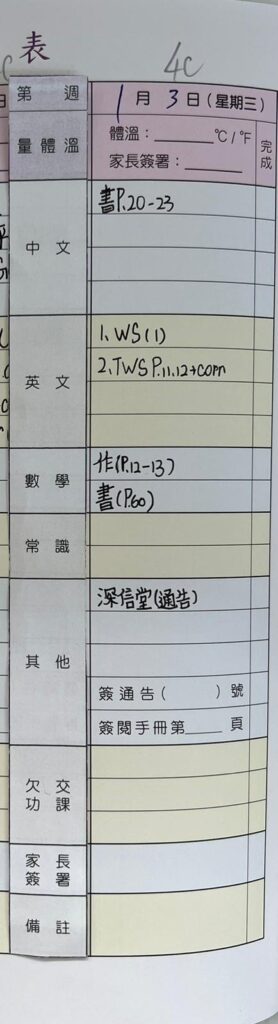 表
4C
第 週
1月3日(星期三)
量體溫
體溫:______℃/℉
家長簽署:______
完成
中文
書P.20-23
英文
1. WS(1)
2. TWS P.11.12+corr
數學
作(P.12-13)
書(P.60)
常識
其他
深信堂(通告)
簽通告( )號
簽閱手冊第____頁
欠交功課
家長簽署
備註